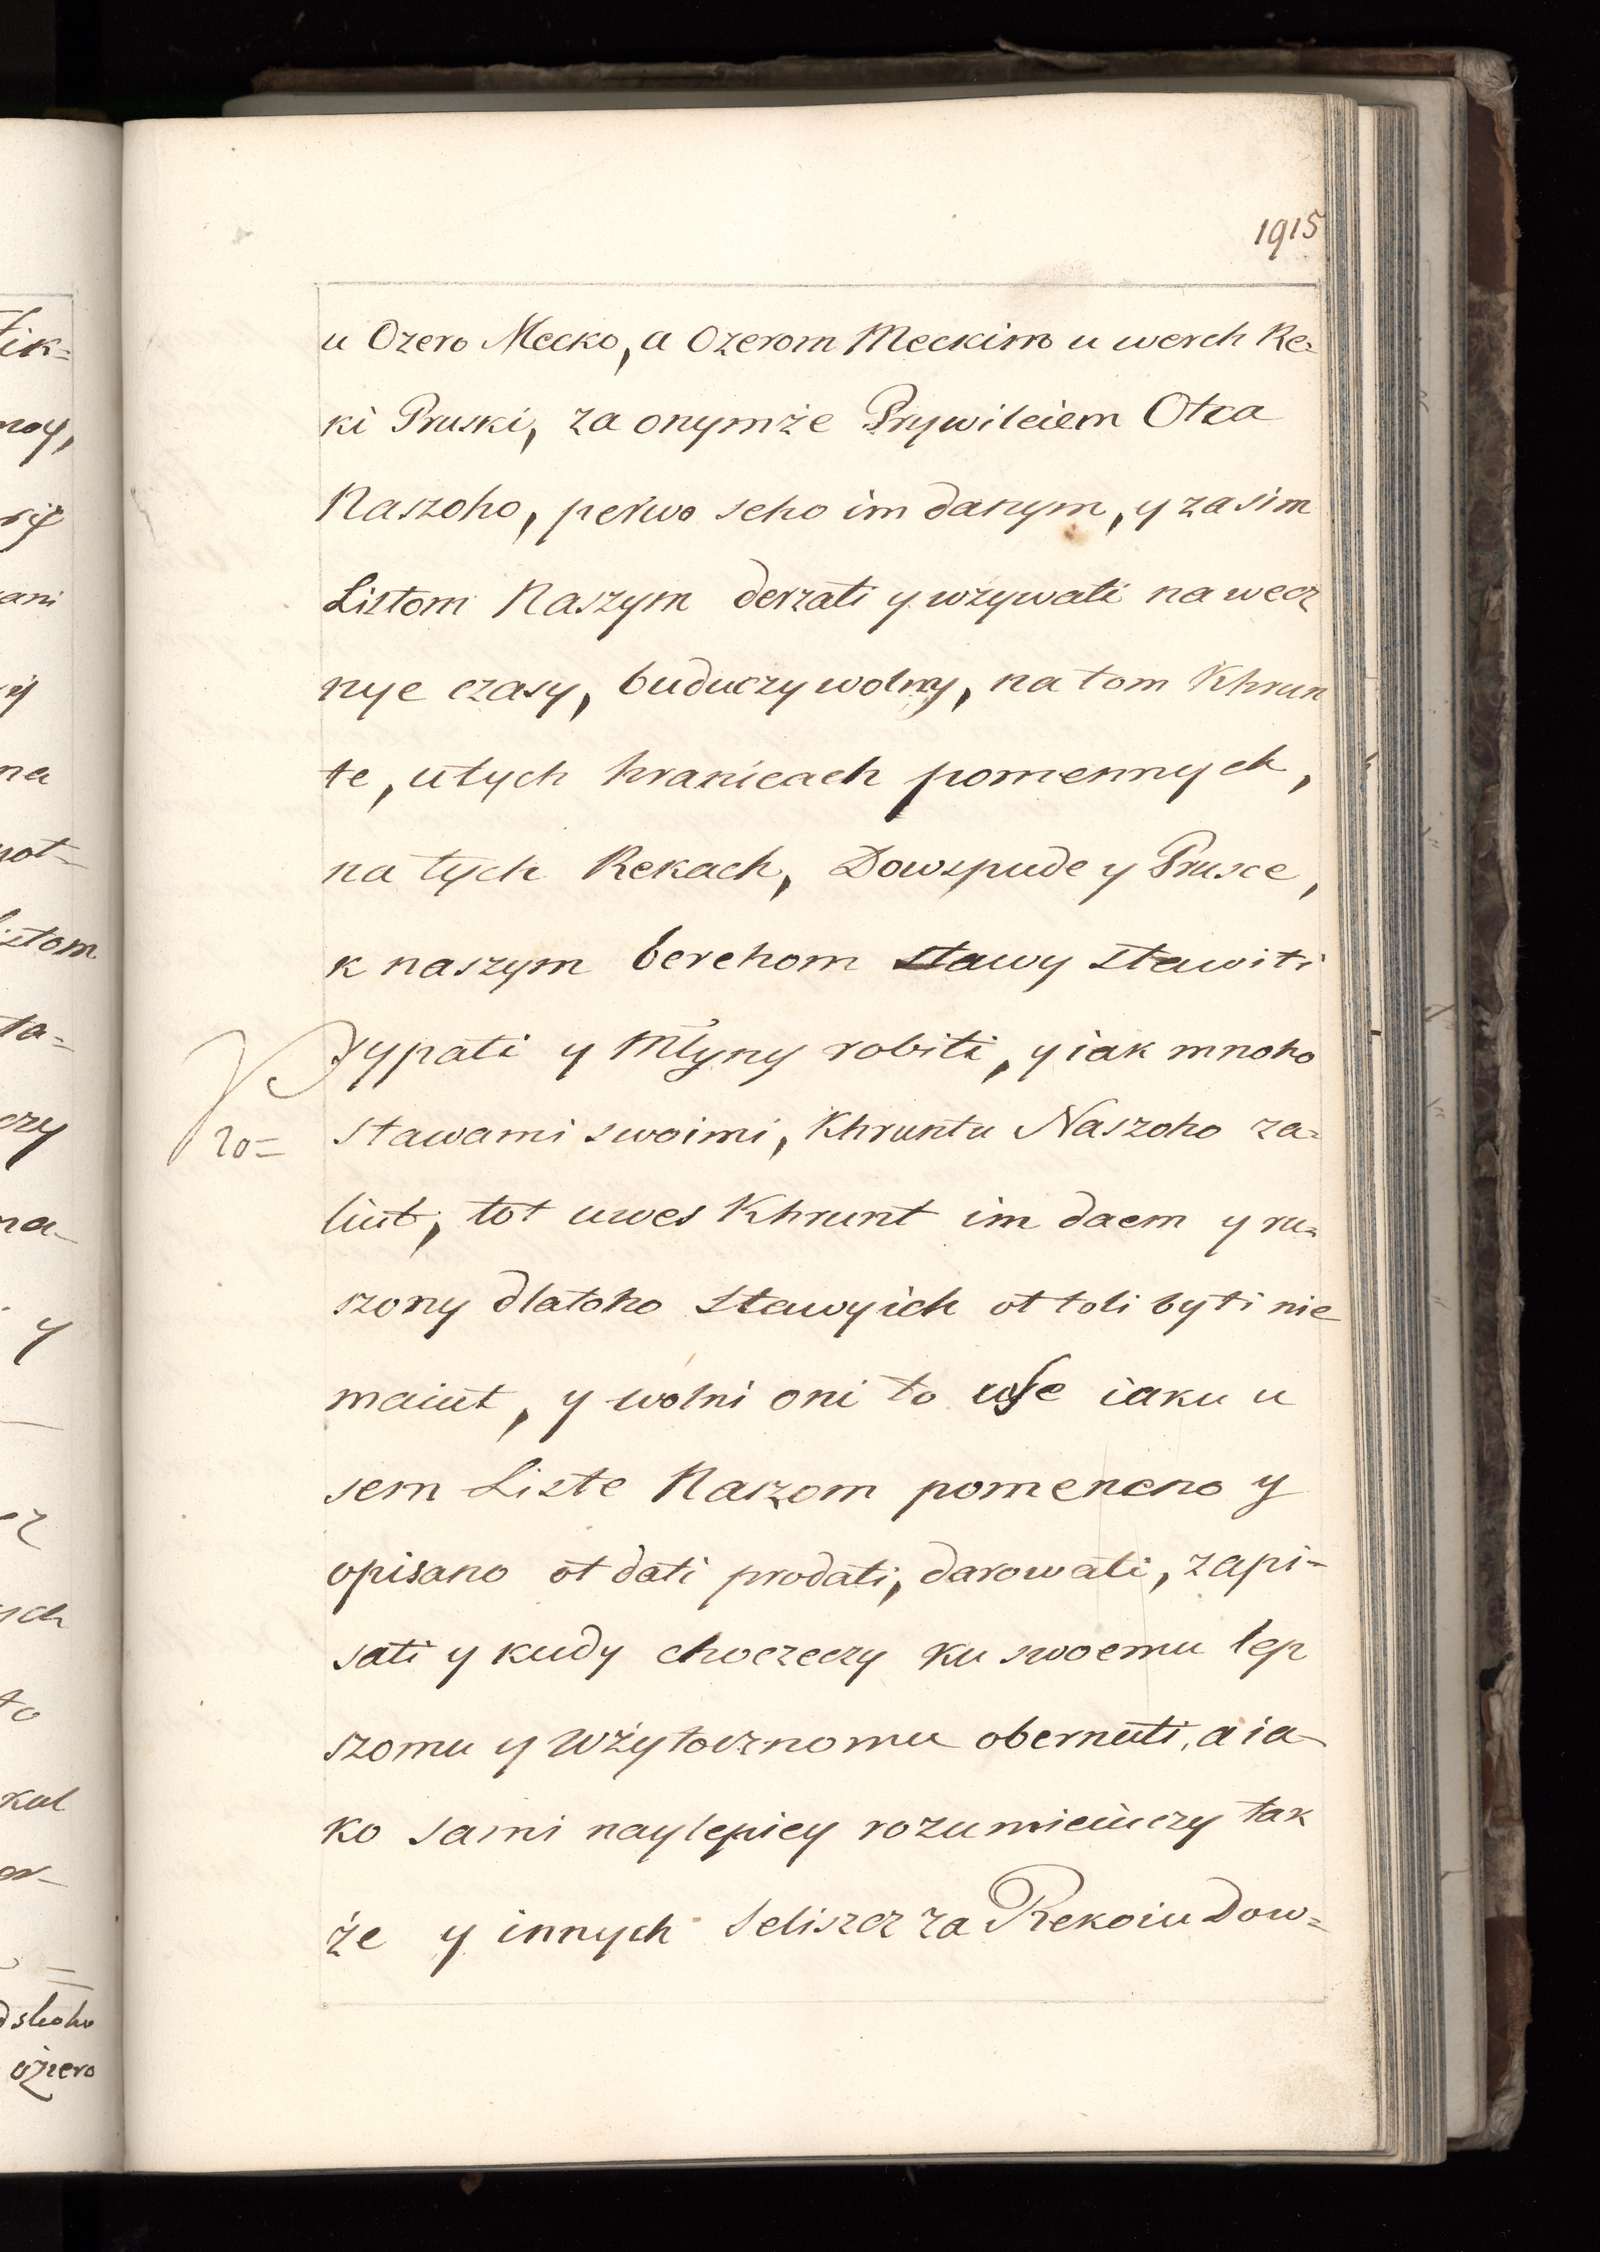 1915
u Ozero Mecko, a Ozerom Meckim u werch Re=
ki Pruski, za onymże Prywileiem Otca
Naszoho, perwo seho im danym, y za sim
Listom Naszym derzati y wżywati na wecz
nye czasy, buduczy wolny, na tom Khrun
te, u tych hranicach pomennych,
na tych Rekach, Dowspude y Prusce,
k naszym berehom stawy stawiti
sypati y Młyny robiti, y iak mnoho
20= stawami swoimi, Khruntu Naszoho za=
liut, tot uwes Khrunt im daem y ru=
szony dlatoho stawy ich ot toli byti nie
maiut, y wolni oni to wse iaku u
sem Liste Naszom pomeneno y
opisano ot dati prodati, darowati, zapi-
sati y kudy choczeczy ku swoemu lep
szomu y wżytocznomu obernuti, a ia-
ko sami naylepiey rozumieiuczy tak
że y innych seliszcz za Rekoiu Dow=
ik=
noy,
ani
na
not-
istom
ta-
czy
na-
y
ych
to
kul
dskoho
oziero